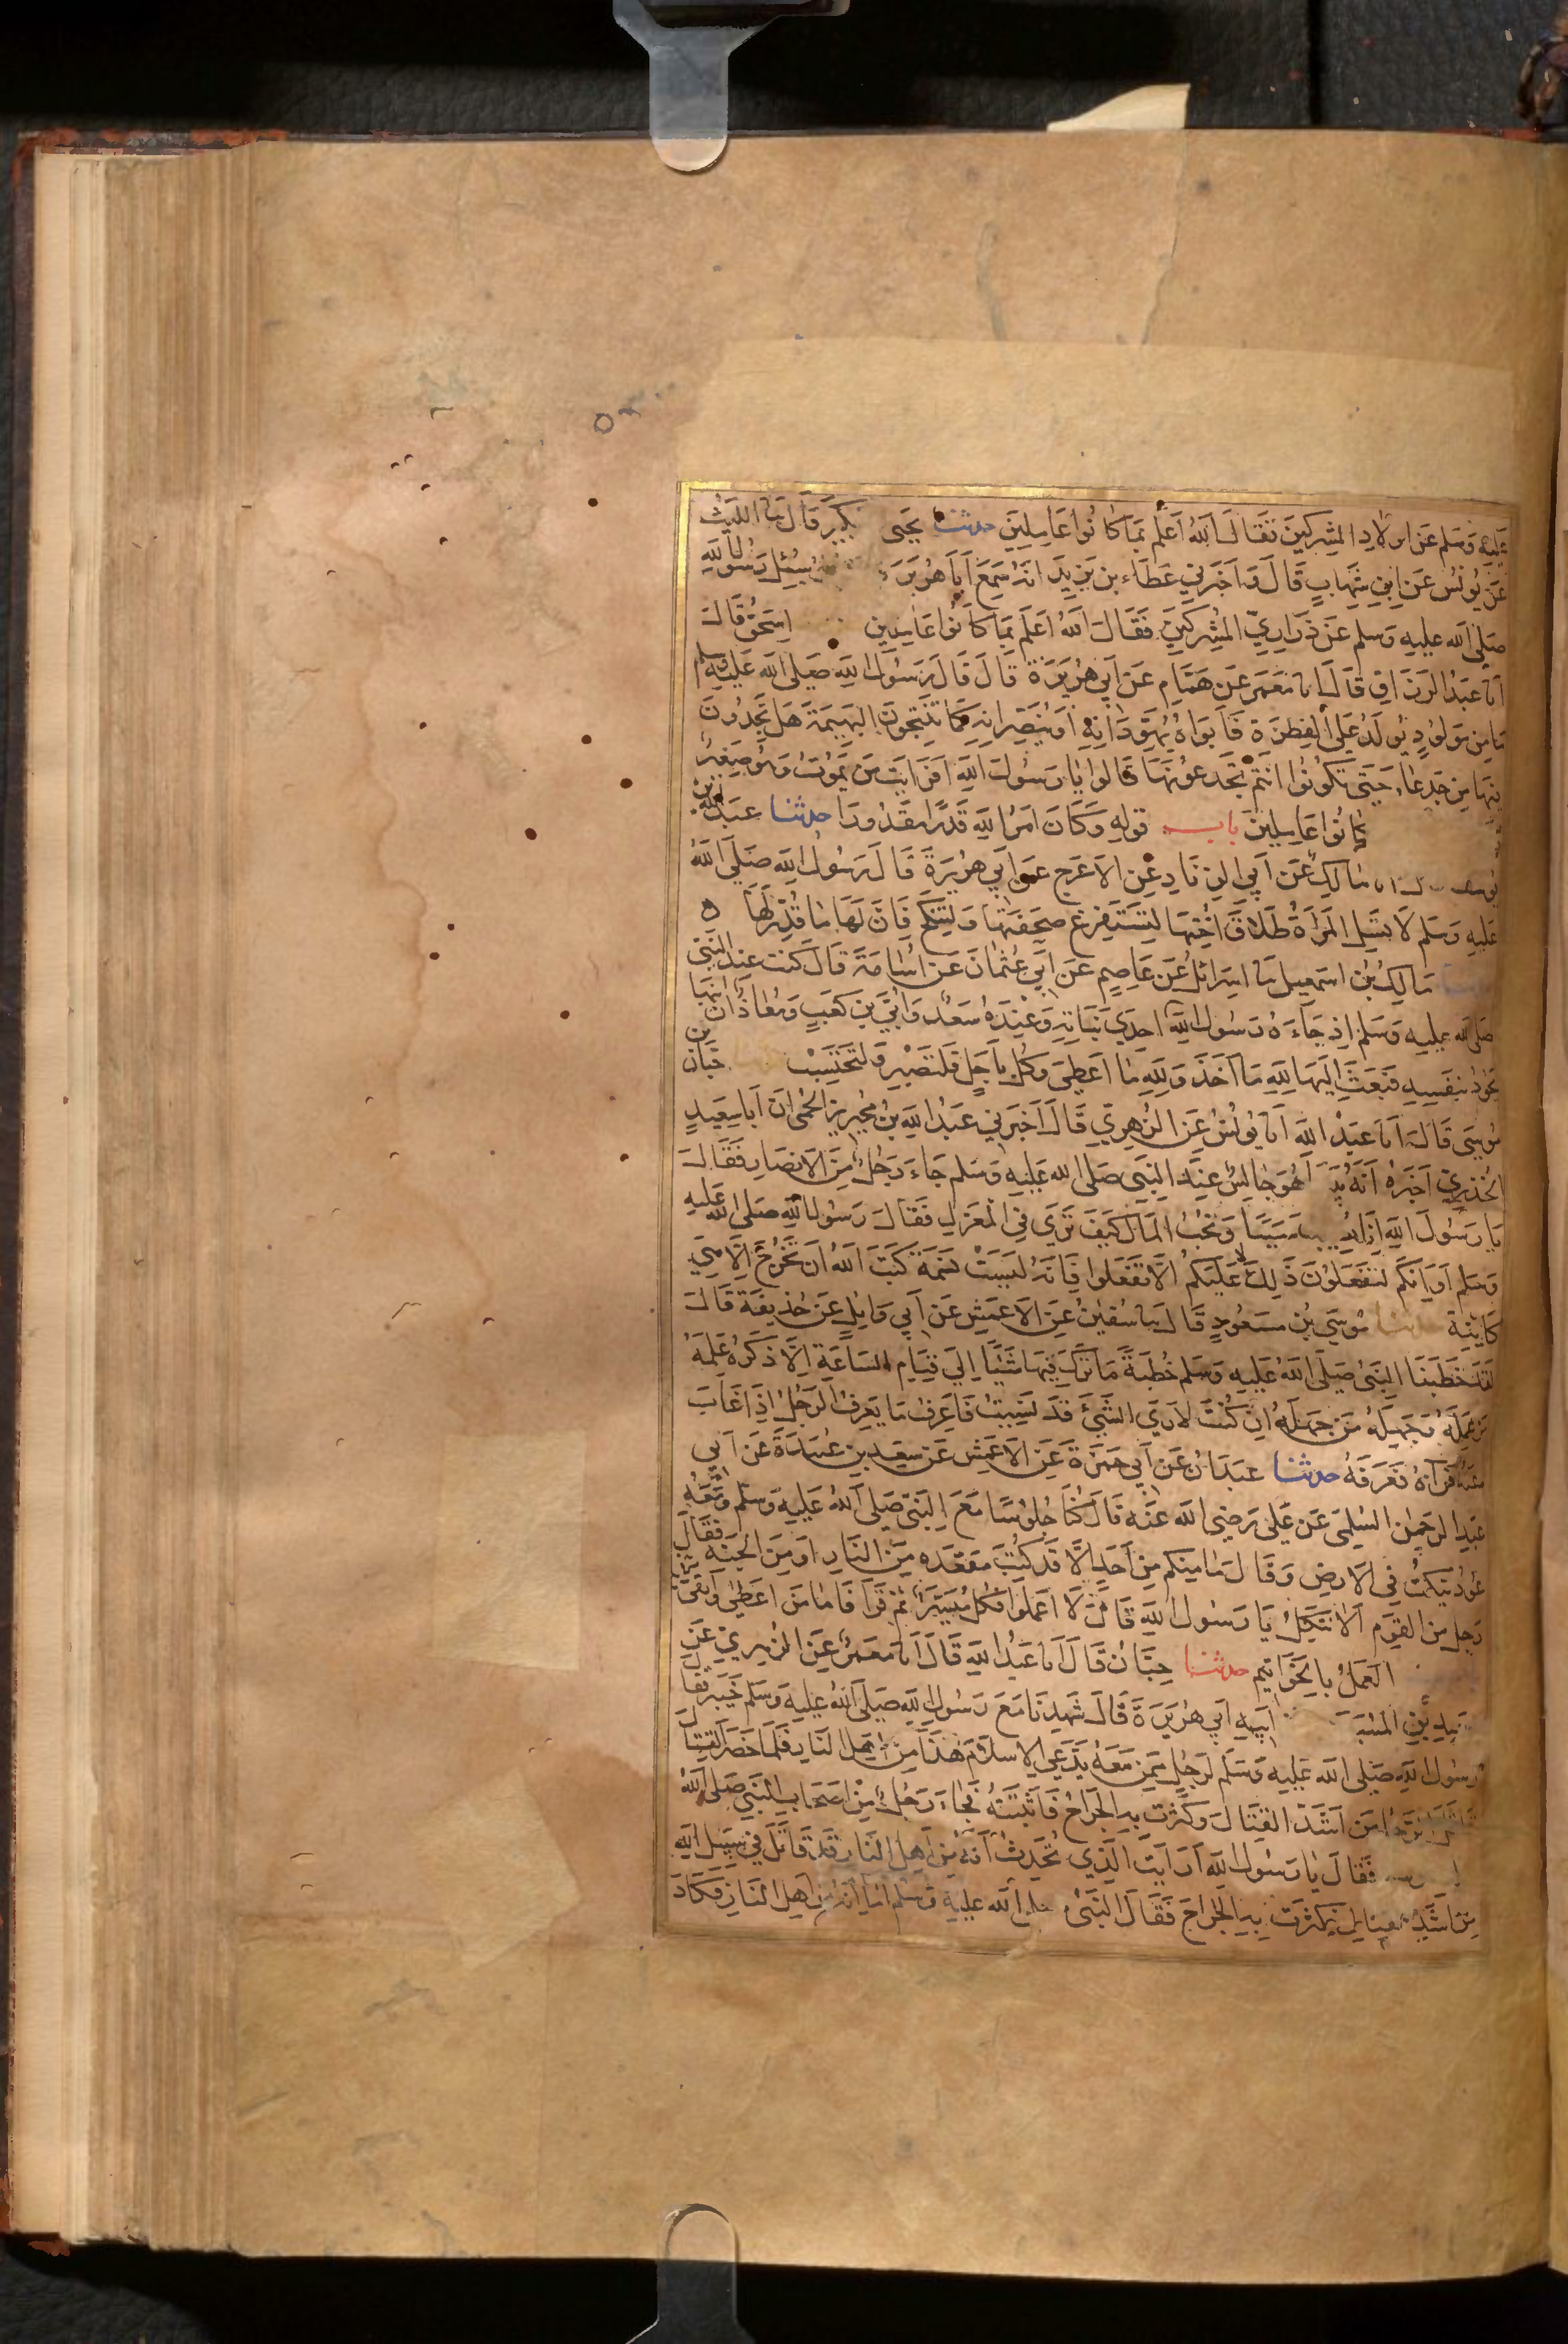 عليه وسلم عن اولاد المشركين فقال الله اعلم بما كانوا عاملين حدثنا يحيى بكير قال نا الليث
عن يونس عن ابن شهاب قال واخبرني عطاء بن يزيد انه سمع ابا هريرة سئل رسول الله
صلى الله عليه وسلم عن ذراري المشركين فقال الله اعلم بما كانوا عاملين اسحق قال
انا عبد الرزاق قال انا معمر عن همام عن ابي هريرة قال قال رسول الله صلى الله عليه وسلم
ما من مولود يولد على الفطرة فابواه يهودانه او ينصرانه كما تنتجون البهيمة هل تجدون
فيها من جدعاء حتى تكونوا انتم تجدعونها قالوا يا رسول الله افرايت من يموت وهو صغير
كانوا عاملين باب قوله وكان امر الله قدرا مقدورا حدثنا عبد الله بن
يوسف مالك عن ابي الزناد عن الاعرج عن ابي هريرة قال رسول الله صلى الله
عليه وسلم لا تسئل المراة طلاق اختها لتستفرغ صحفتها ولتنكح فان لها ما قدر لها
مالك بن اسمعيل نا اسرائل عن عاصم عن ابي عثمان عن اسامة قال كنت عند النبي
صلى الله عليه وسلم اذ جاءه رسول الله احدي بناته وعنده سعد وابي بن كعب ومعاذ ان ابنها
يجود بنفسه فبعث اليها لله ما اخذ ولله ما اعطى وكل باجل فلتصبر ولتحتسب حبان بن
موسى قال انا عبد الله انا يونس عن الزهري قال اخبرني عبد الله بن محيريز الجمحي ان ابا سعيد
الخدري اخبره انه هو جالس عند النبي صلى الله عليه وسلم جاء رجل من الانصار فقال
يا رسول الله انا سبيا ونحب المال كيف ترى في العزل فقال رسول الله صلى الله عليه
وسلم او انكم لتفعلون ذلك لا عليكم الا تفعلوا فانه ليست نسمة كتب الله ان تخرج الا هي
كاينة حدثنا موسى بن مسعود قال نا سفين عن الاعمش عن ابي وايل عن حذيفة قال
لقد خطبنا النبي صلى الله عليه وسلم خطبة ما ترك فيها شيئا الي قيام الساعة الا ذكره علمه
من علمه وجهله من جهله ان كنت لاري الشئ قد نسيت فاعرف ما يعرف الرجل اذا غاب
عنه فراه فعرفه حدثنا عبدان عن ابي حمزة عن الاعمش عن سعيد بن عبيدة عن ابي
عبد الرحمن السلمي عن علي رضي الله عنه قال كنا جلوسا مع النبي صلى الله عليه وسلم ومعه
عود ينكت في الارض وقال ما منكم من احد الا قد كتب مقعده من النار او من الجنة فقال
رجل من القوم الا نتكل يا رسول الله قال لا اعملوا فكل ميسر ثم قرا فاما من اعطى واتقى
العمل بالخواتيم حدثنا حبان قال انا عبد الله قال انا معمر عن الزهري عن
بن المسيب ابي هريرة قال شهدنا مع رسول الله صلى الله عليه وسلم خيبر فقال
رسول الله صلى الله عليه وسلم لرجل ممن معه يدعي الاسلام هذا من اهل النار فلما حضر القتال
من اشد القتال وكثرت به الجراح فاثبتته فجاء رجل من اصحاب النبي صلى الله
فقال يا رسول الله ارايت الذي تحدث انه من اهل النار قد قاتل في سبيل الله
من اشد فكثرت به الجراح فقال النبي صلى الله عليه وسلم اما انه من اهل النار فكاد